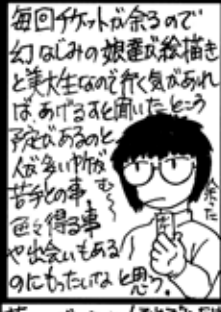 毎回チケットが余るので
幻なじみの娘達が絵描き
と美大生なので行く気があれ
ば、あげるすと聞いたところ
予定があるのと、
人が多いやけが
苦手との事。
色々得る事
や出会いもある
のにもったいないなと思う。
む〜
余った